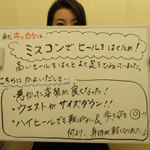 来たキッカケは
ミスコンでヒールをはくため!
高いヒールをはくとよく足をひねっていました。
こちらにかよいだして…
・悪かった姿勢が良くなった!
・ウエストがサイズダウン!!
・ハイヒールでも転ばない&
何より、身体が軽くなりました